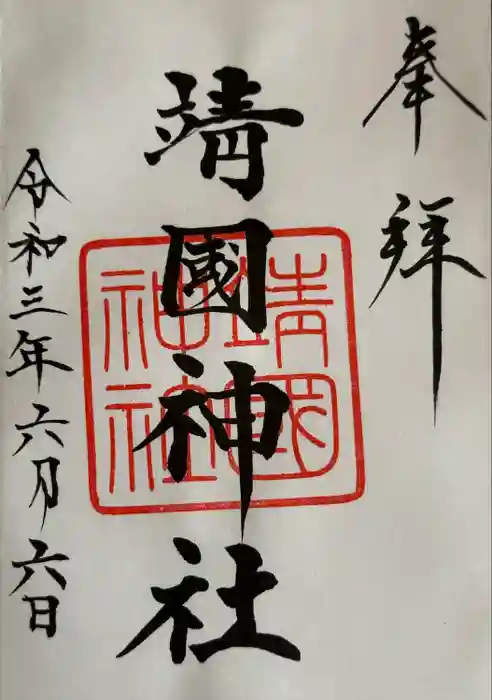 奉拝
靖國神社
靖國
神社
令和三年六月六日